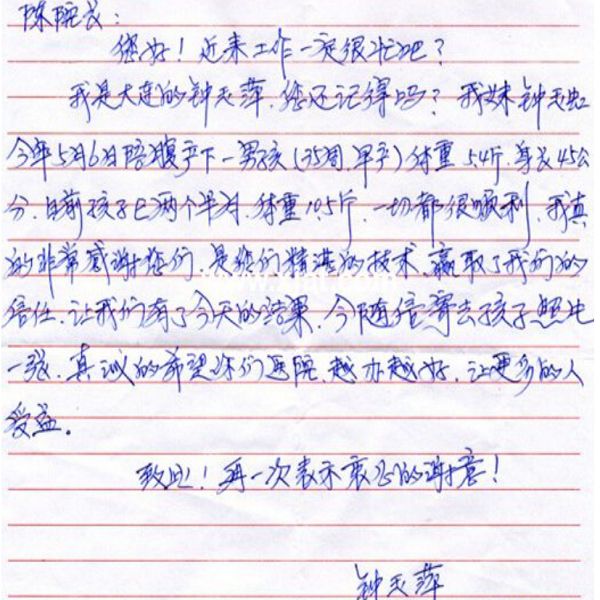 陈院长：
您好！近来工作一定很忙吧？
我是大连的钟玉萍，您还记得吗？我妹钟玉虹
今年5月6日陪腹产下一男孩（35周.早产）体重5.4斤.身长45公
分.目前孩子已两个半月.体重10.5斤.一切都很顺利.我真
的非常感谢您们.是您们精湛的技术.赢取了我们的
信任.让我们有了今天的结果.今随信寄去孩子照片
一张.真诚的希望你们医院.越办越好.让更多的人
受益。
致此！再一次表示衷心的谢意！
钟玉萍